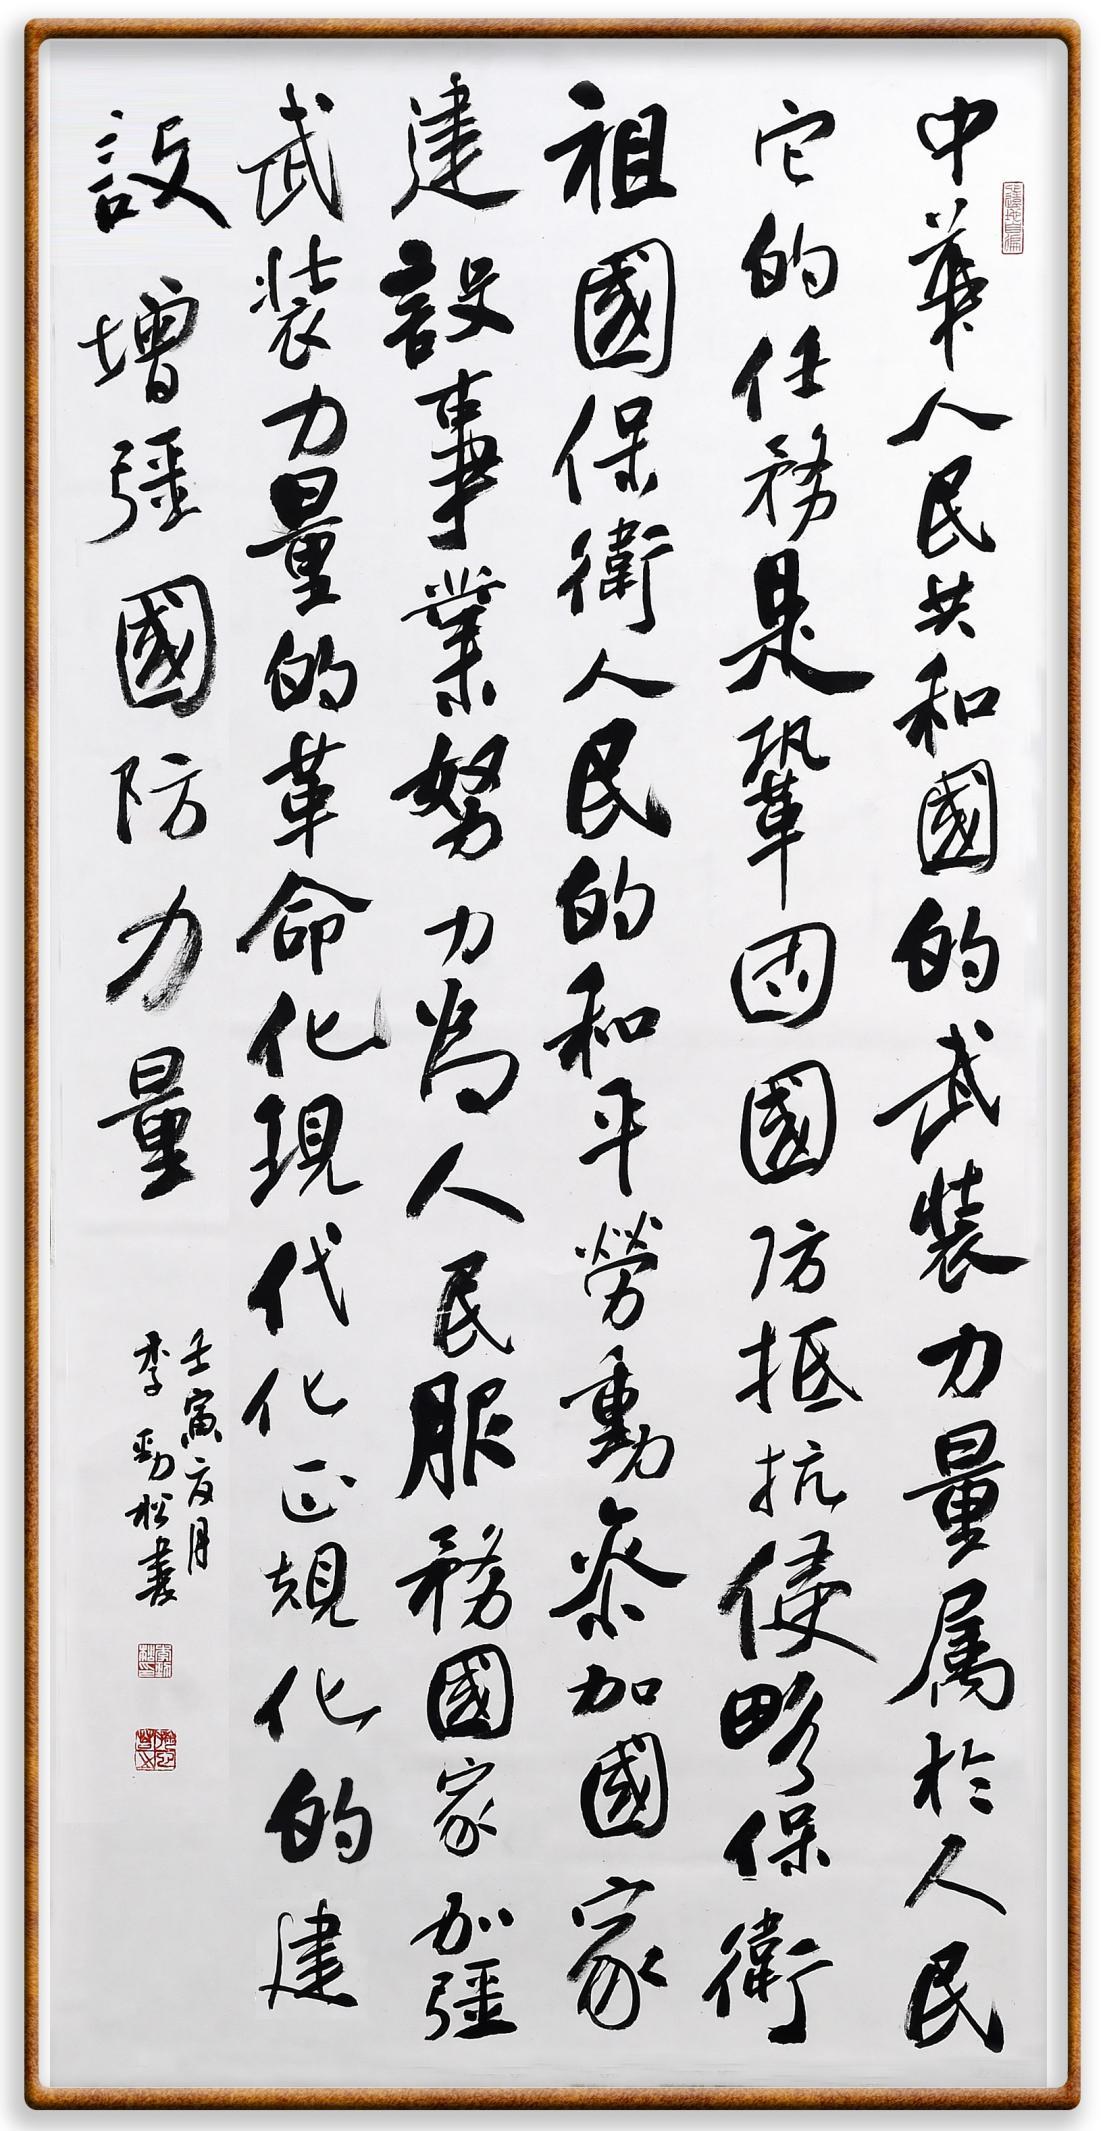 中華人民共和國的武装力量属於人民
它的任務是鞏固國防抵抗侵略保衛
祖國保衛人民的和平勞動参加國家
建設事業努力為人民服務國家加彊
武装力量的革命化現代化正規化的建
設增彊國防力量
壬寅友月
李勁松書